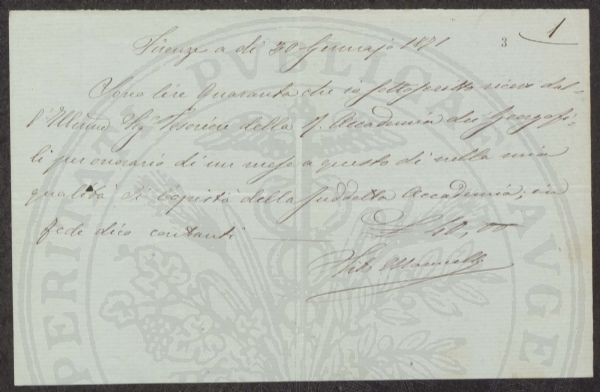 1
3
Firenze a dì 30 Gennajo 1871
Sono lire Quaranta che io sottoscritto ricevo dal-
l'Illmo Sig. Tesoriere della R. Accademia dei Georgofi-
li per onorario di un mese a questo dì nella mia
qualità di copista della suddetta Accademia, in
fede dico contanti £ 40,00
PERIMENTI PVBLICAE AVGE